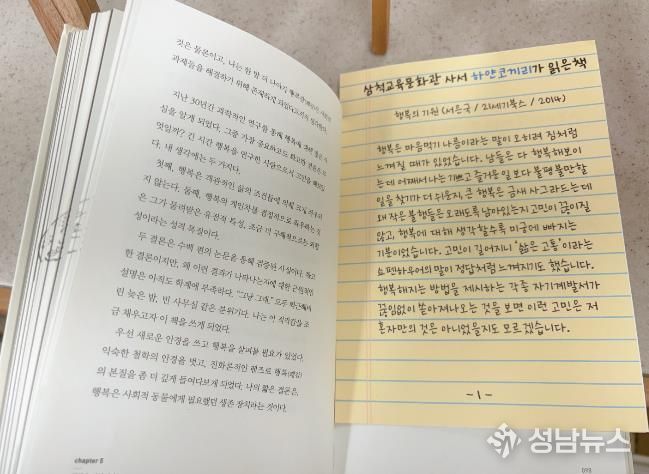 것은 물론이고, 나는 한 발 더 나아가
과제들을 해결하기 위해
지난 30년간 과학적인 연구를 통해 행복에 대한 많은 사
실을 알게 되었다. 그중 가장 중요하다고
멋일까? 긴 시간 행복을 연구한 사람으로서 고민을 해보았
다. 내 생각에는 두 가지다.
첫째, 행복은 객관적인 삶의 조건들에 의해 크게 좌우되
지 않는다. 둘째, 행복의 개인차를 결정적으로 좌우하는 것
은 그가 물려받은 유전적 특성, 조금 더 구체적으로는 외향
성이라는 성격 특질이다.
두 결론은 수백 편의 논문을 통해 검증된 사실이다. 확고
한 결론이지만, 왜 이런 결과가 나타나는지에 대한 근원적인
설명은 아직도 학계에 부족하다. "그냥 그래." 모두 퇴근해버
린 늦은 밤, 빈 사무실 같은 분위기다. 나는 이 적막감을 조
금 채우고자 이 책을 쓰게 되었다.
우선 새로운 안경을 쓰고 행복을 살펴볼 필요가 있었다.
익숙한 철학의 안경을 벗고, 진화론적인 렌즈로 행복(쾌감)
의 본질을 좀 더 깊게 들여다보게 되었다. 나의 짧은 결론은,
행복은 사회적 동물에게 필요했던 생존 장치라는 것이다.
chapter 5
삼척교육문화관 사서 하얀코끼리가 읽은책
행복의 기원 (서은국 / 21세기북스 / 2014)
행복은 마음먹기 나름이라는 말이 오히려 짐처럼
느껴질 때가 있었습니다. 남들은 다 행복해보이
는데 어째서 나는 기쁘고 즐거운 일보다 불평불만할
일을 찾기가 더 쉬운지, 큰 행복은 금새 사그라드는데
왜 작은 불행들은 오래도록 남아있는지 고민이 끊이질
않고, 행복에 대해 생각할수록 미궁에 빠지는
기분이었습니다. 고민이 길어지니 '삶은 고통'이라는
쇼펜하우어의 말이 정답처럼 느껴지기도 했습니다.
행복해지는 방법을 제시하는 각종 자기계발서가
끊임없이 쏟아져나오는 것을 보면 이런 고민은 저
혼자만의 것은 아니었을지도 모르겠습니다.
-1-
성남뉴스